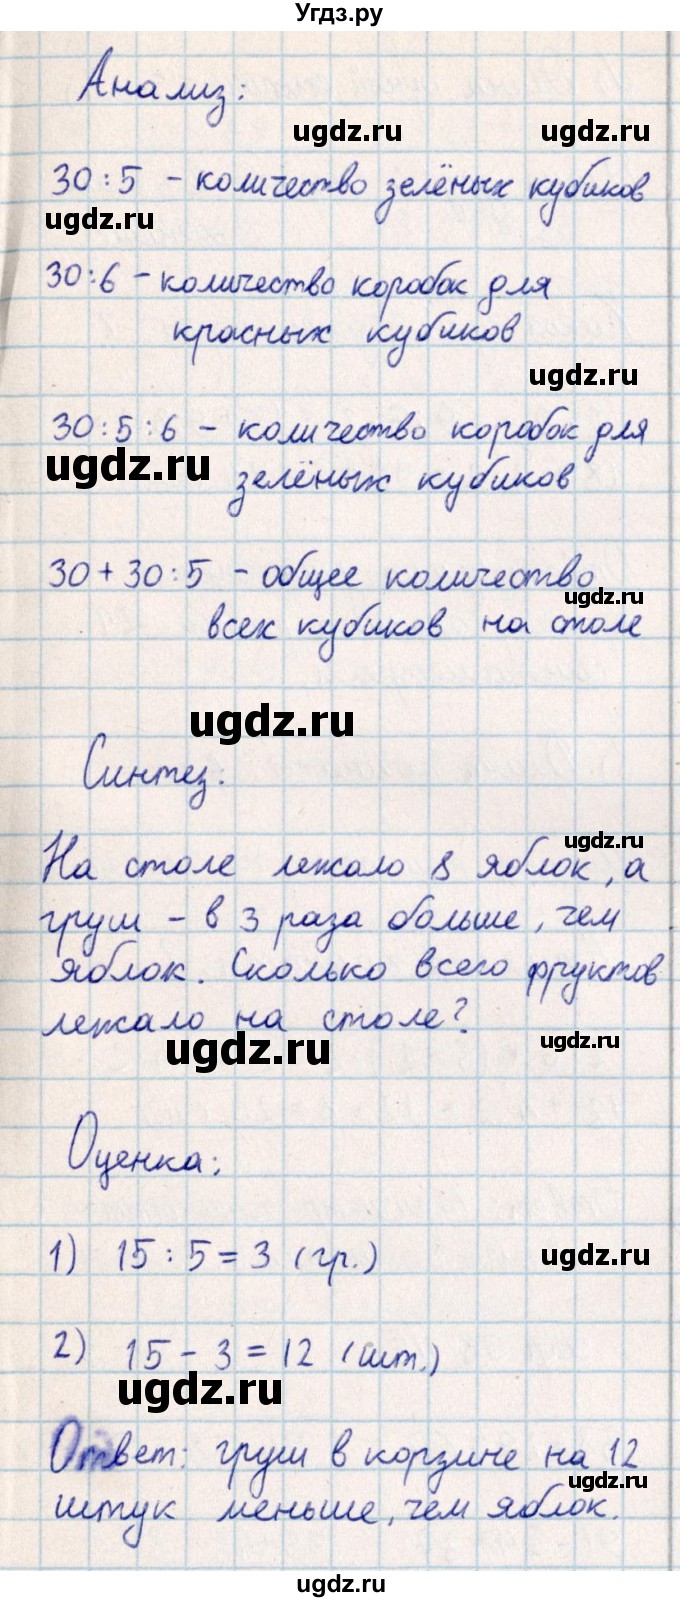 Угдз.ру
Анализ:
ugdz.ru ugdz.ru
30 : 5 - количество зелёных кубиков
ugdz.ru
30 : 6 - количество коробок для
красных кубиков
ugdz.ru
30 : 5 : 6 - количество коробок для
ugdz.ru зелёных кубиков
30 + 30 : 5 - общее количество
ugdz.ru
всех кубиков на столе
ugdz.ru
Синтез:
ugdz.ru
На столе лежало 8 яблок, а
груш - в 3 раза больше, чем
яблок. Сколько всего фруктов
лежало на столе?
ugdz.ru ugdz.ru
Оценка:
1) 15 : 5 = 3 (гр.) ugdz.ru
2) 15 - 3 = 12 (шт.)
ugdz.ru
Ответ: груш в корзине на 12
ugdz.ru
штук меньше, чем яблок.
ugdz.ru